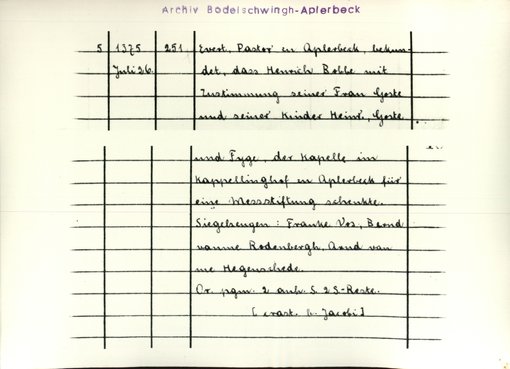 Archiv Bodelschwingh-Aplerbeck
5 1375 251 Evert, Pastor en Aplerbeck, bekun-
Juli 26. det, dass Henrich Bobbe mit
Zustimmung seiner Frau Goste
und seiner Kinder Heinr., Goste
und Fyge, der Kapelle im
Kappellinghof en Aplerbeck für
eine Messstiftung schenkte.
Siegelzeugen: Franke Vos, Bernd
vanme Rodenbergh, Arnd van
me Hegenschede.
Or. pgm. 2 anh. S. 2 S-Reste.
Jacobi]